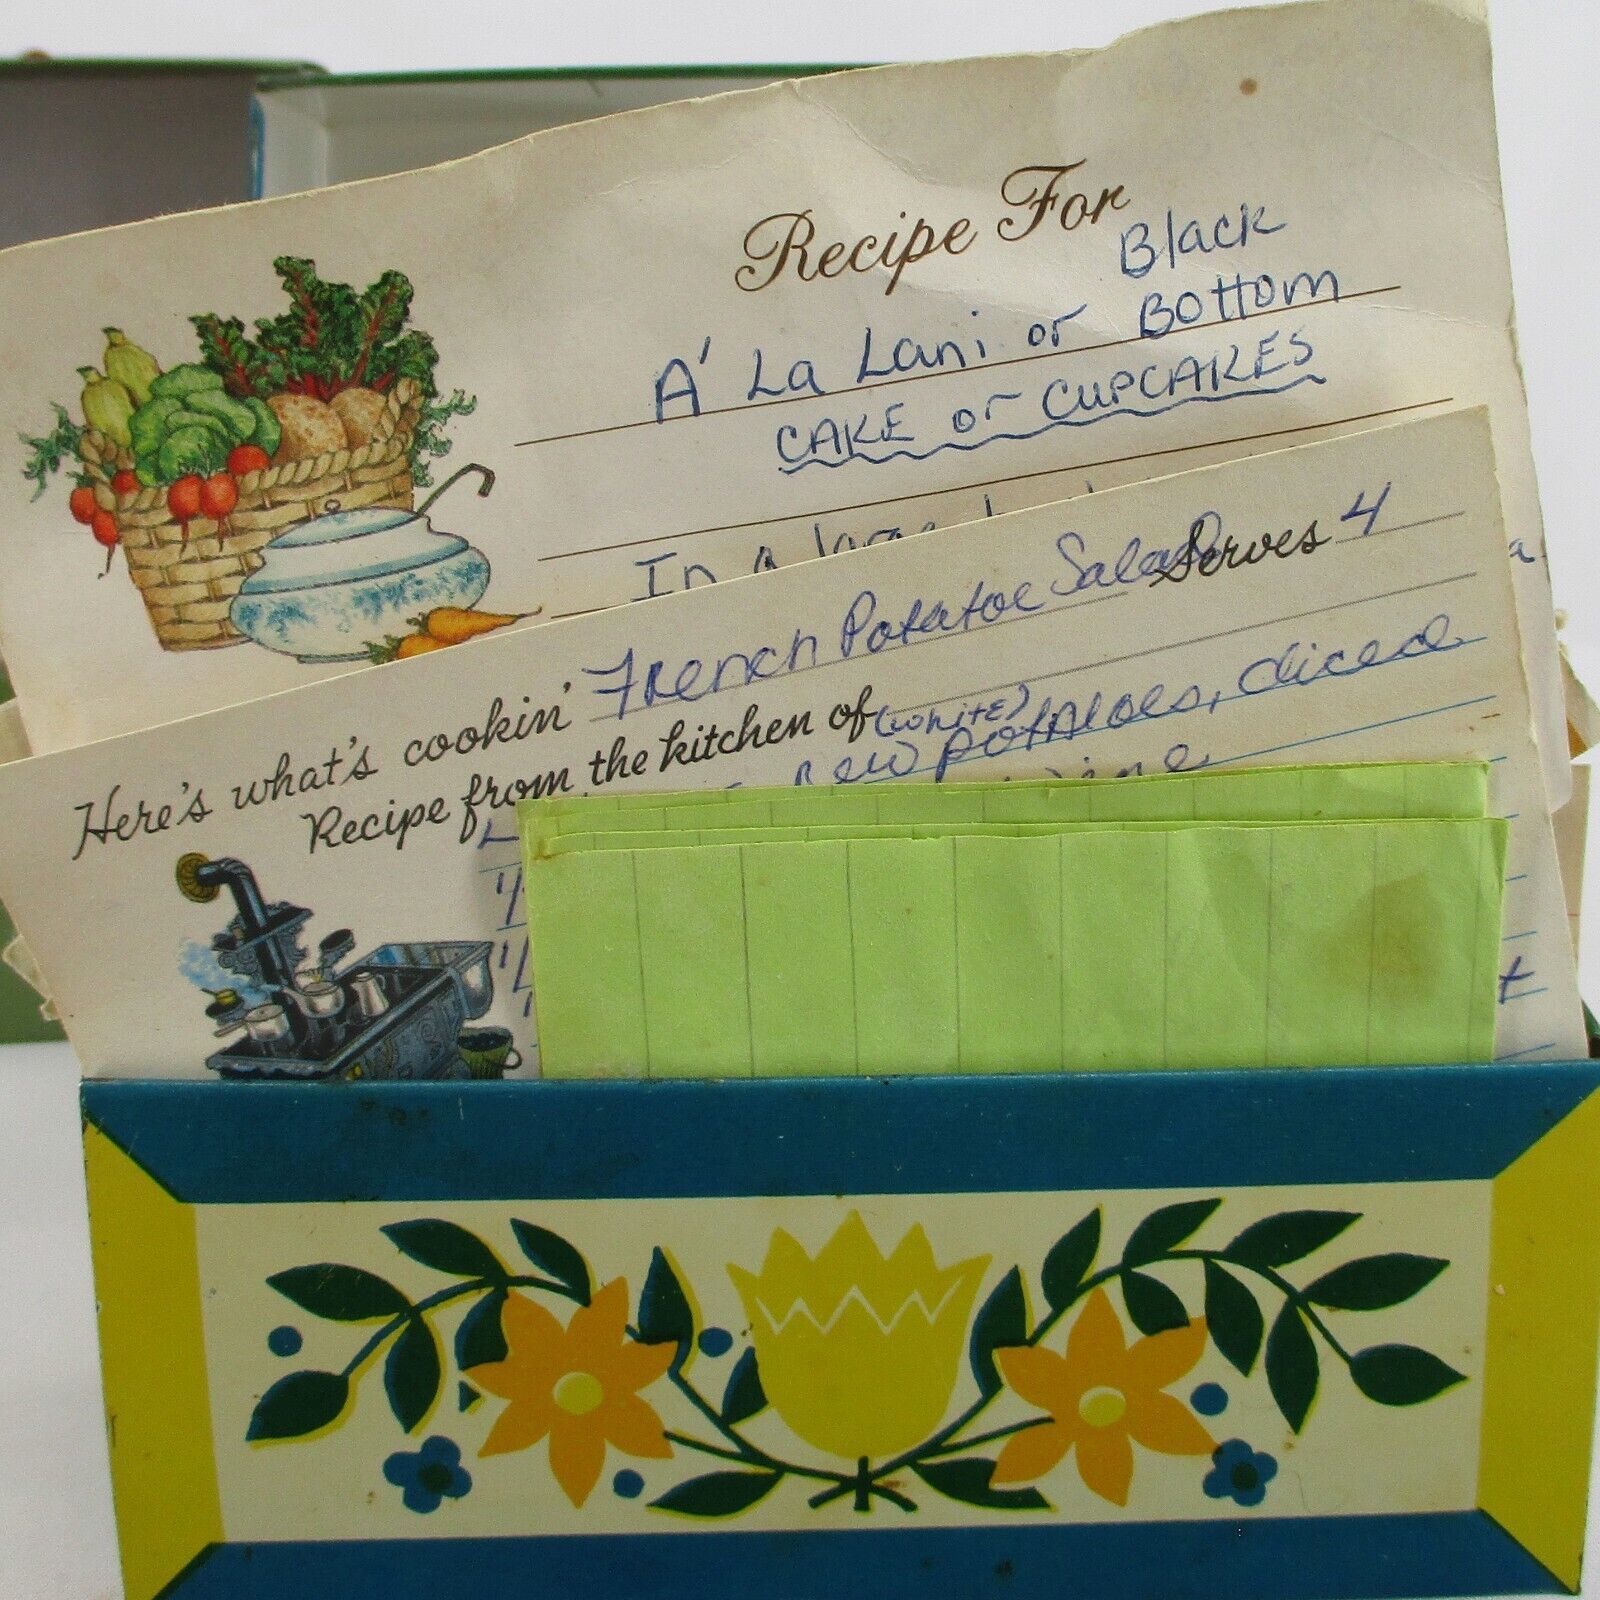 Recipe For
Black
A' La Lani or Bottom
CAKE or CUPCAKES
In a
a
Here's what's cookin' French Potatoe Salad Serves 4
Recipe from the kitchen of (White)
new potatoes, diced